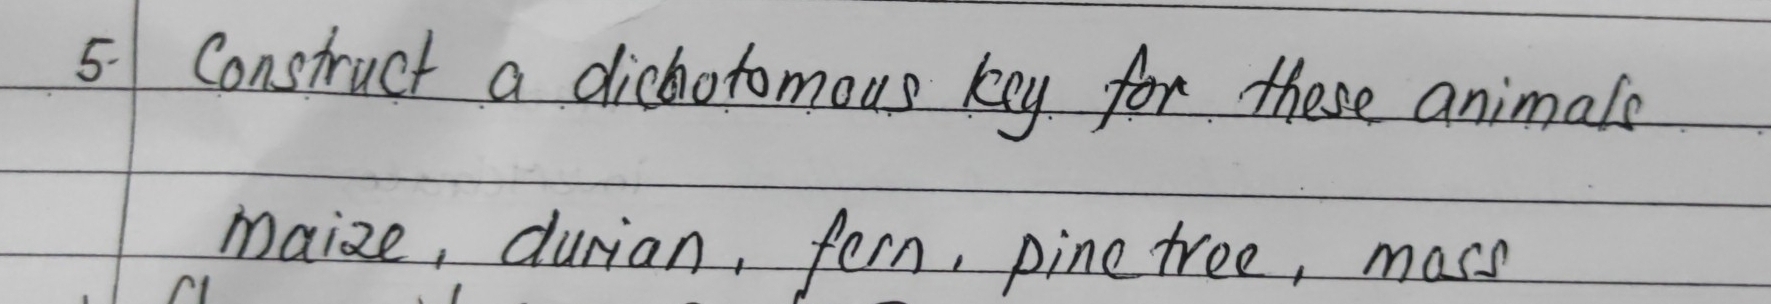 5. Construct a dichotomous key for these animals
maize, durian, fern, pine tree, moss